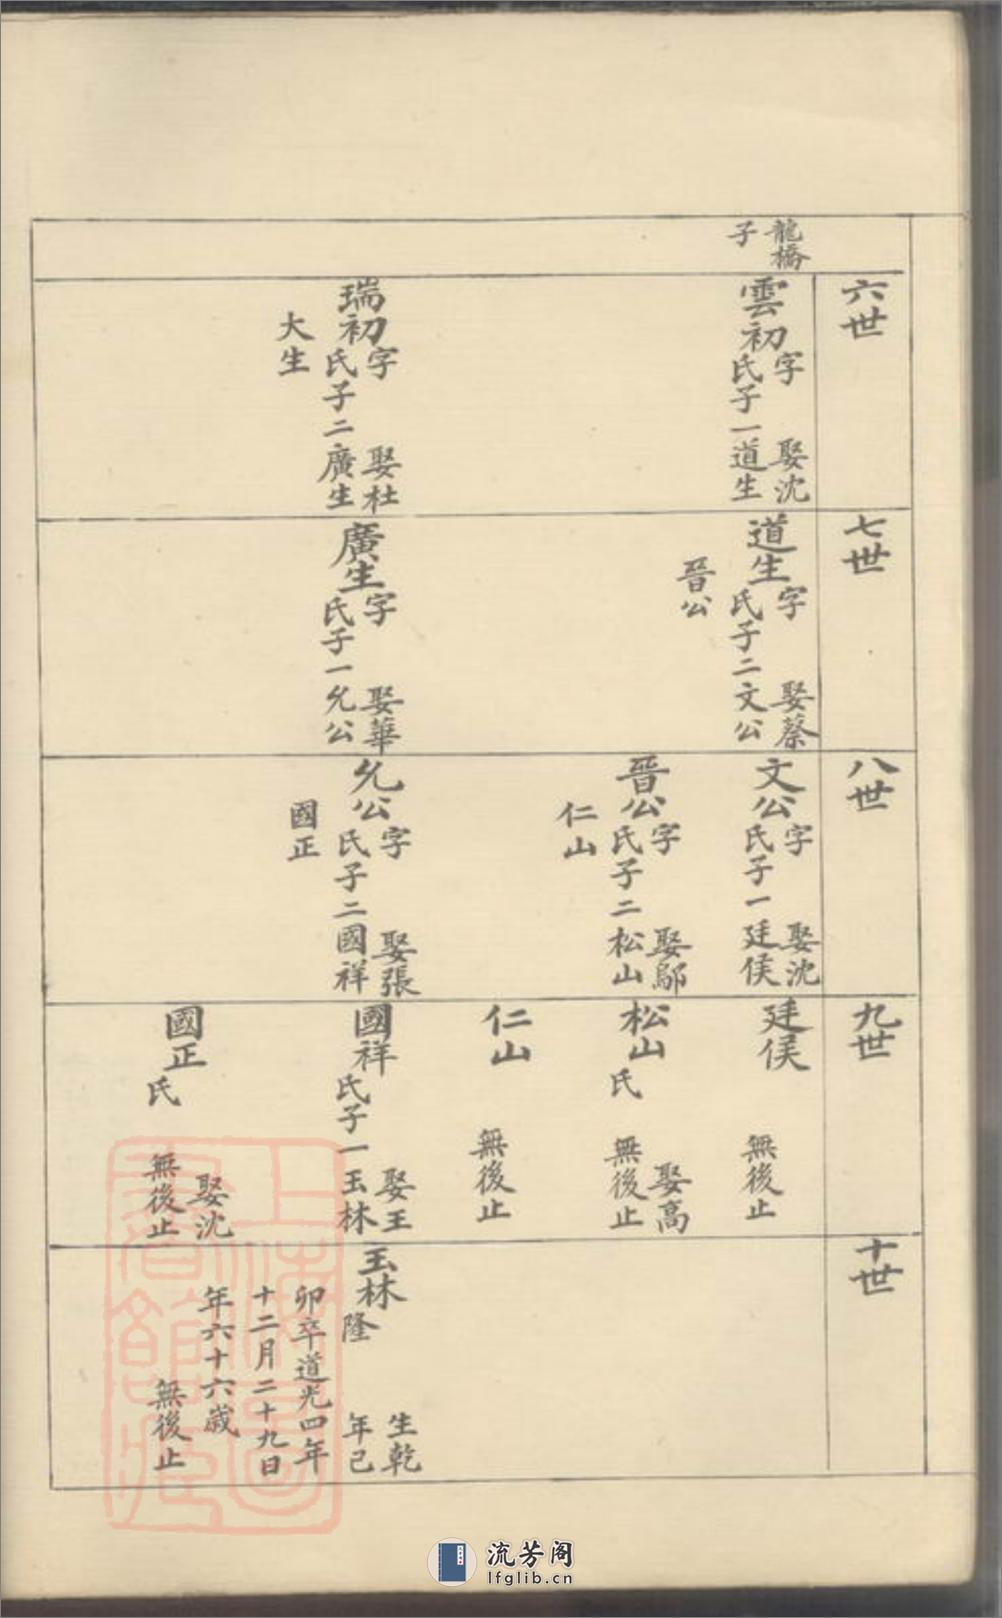 龍橋
子
六世
雲初字 娶沈
氏子一道生
瑞初字 娶杜
氏子二廣生
大生
七世
道生字 娶蔡
氏子二文公
晉公
廣生字 娶華
氏子一允公
八世
文公字 娶沈
氏子一廷侯
晉公字 娶鄔
氏子二松山
仁山
允公字 娶張
氏子二國祥
國正
九世
廷侯
無後止
松山 娶高
氏 無後止
仁山
無後止
國祥 娶王
氏子一玉林
國正 娶沈
氏 無後止
十世
玉林 生乾
隆 年己
卯卒道光四年
十二月二十九日
年六十六歲
無後止
上海圖
書館藏
流芳阁
lfglib.cn